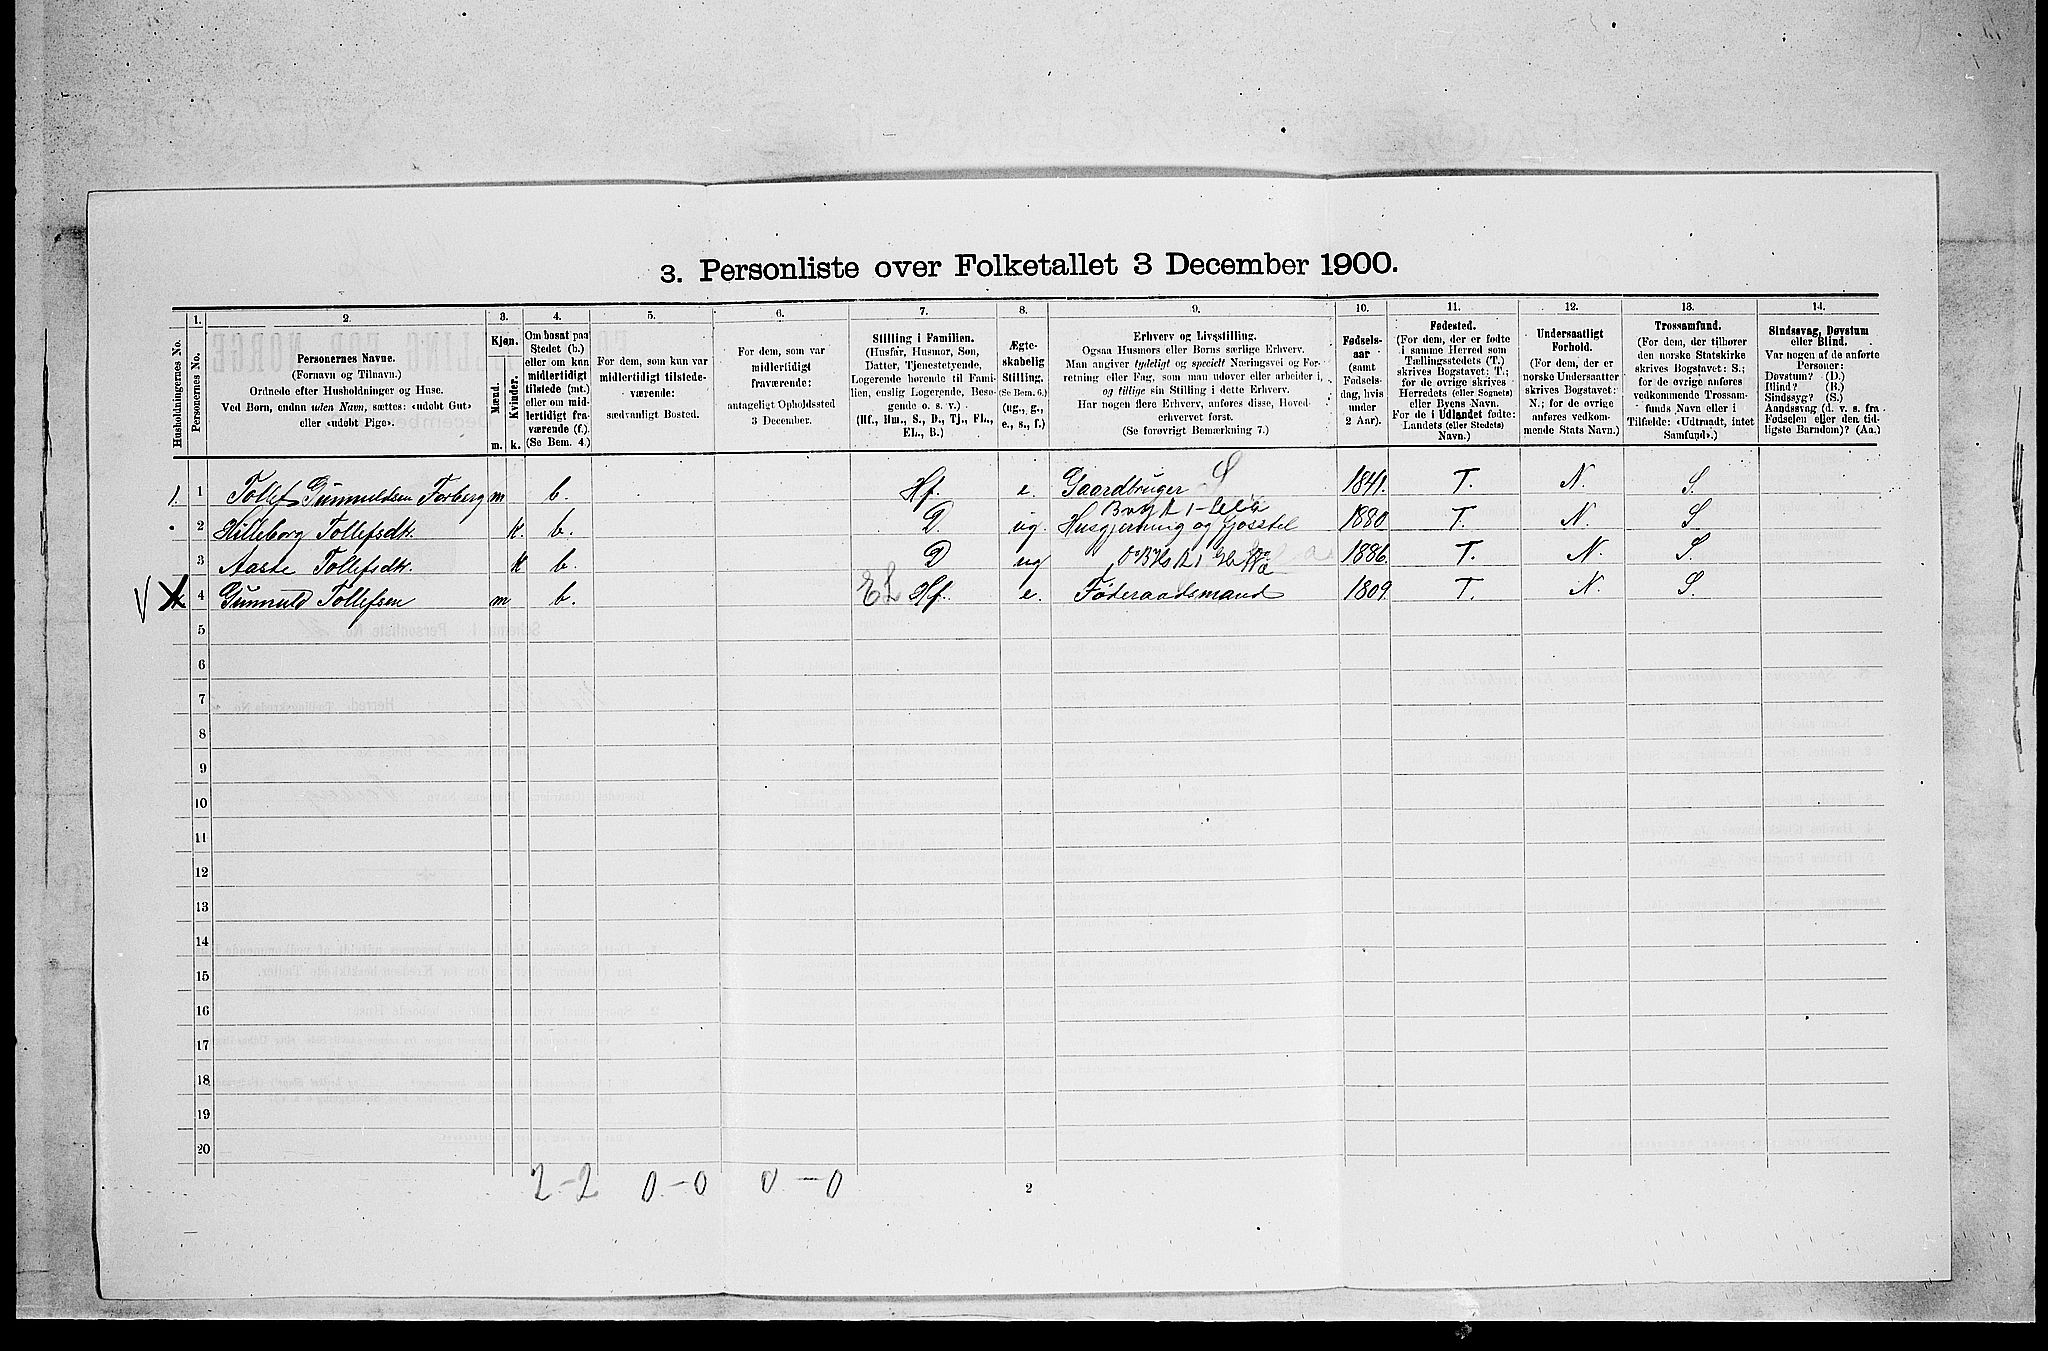 3. Personliste over Folketallet 3 December 1900.
1. 2. 3. 4. 5. 6. 7. 8. 9. 10. 11. 12. 13. 14.
Husholdningernes No.
Personernes No.
Personernes Navne.
(Fornavn og Tilnavn.)
Ordnede efter Husholdninger og Huse.
Ved Børn, endnu uden Navn, sættes: «udøbt Gut»
eller «udøbt Pige».
Kjøn.
Mænd.
Kvinder.
m. k.
Om bosat paa
Stedet (b.)
eller om kun
midlertidigt
tilstede (mt.)
eller om mid-
lertidigt fra-
værende (f.)
(Se Bem. 4.)
For dem, som kun var
midlertidigt tilstede-
værende:
sædvanligt Bosted.
For dem, som var
midlertidigt
fraværende:
antageligt Opholdssted
3 December.
Stilling i Familien.
(Husfar, Husmor, Søn,
Datter, Tjenestetyende,
Logerende hørende til Fami-
lien, enslig Logerende, Besø-
gende o. s. v.)
(Hf., Hm., S., D., Tj., FL.,
EL., B.)
Ægte-
skabelig
Stilling.
(Se Bem. 6.)
(ug., g.,
e., s., f.)
Erhverv og Livsstilling.
Ogsaa Husmors eller Børns særlige Erhverv.
Man angiver tydeligt og specielt Næringsvei og For-
retning eller Fag, som man udøver eller arbeider i,
og tillige sin Stilling i dette Erhverv.
Har nogen flere Erhverv, anføres disse, Hoved-
erhvervet først.
(Se forøvrigt Bemærkning 7.)
Fødsels-
aar
(samt
Fødsels-
dag, hvis
under
2 Aar).
Fødested.
(For dem, der er fødte
i samme Herred som
Tællingsstedets (T.)
skrives Bogstavet: T.;
for de øvrige skrives
Herredets (eller Sognets)
eller Byens Navn.
For de i Udlandet fødte:
Landets (eller Stedets)
Navn.)
Undersaatligt
Forhold.
(For dem, der er
norske Undersaatter
skrives Bogstavet:
N.; for de øvrige
anføres vedkom-
mende Stats Navn.)
Trossamfund.
(For dem, der tilhører
den norske Statskirke
skrives Bogstavet: S.;
for de øvrige anføres
vedkommende Trossam-
funds Navn eller i
Tilfælde: «Udtraadt, intet
Samfund».)
Sindssvag, Døvstum
eller Blind.
Var nogen af de anførte
Personer:
Døvstum? (D.)
Blind? (B.)
Sindssyg? (S.)
Aandssvag (d. v. s. fra
Fødselen eller den tid-
ligste Barndom)? (Aa.)
1. 1 Tollef Gunnuldsen Forberg m b. Hf. e. Gaardbruger S 1841. T. N. S.
2 Hilleborg Tollefsdt. k. b. D. ug. Husgjerning og Fjosstel 1880 T. N. S
3 Aaste Tollefsdt. k b. D ug 1886. T. N. S.
4 Gunnuld Tollefsen m b. EL Hf. e. Føderaadsmand 1809. T. N. S.
5
6
7
8
9
10
11
12
13
14
15
16
17
18
19
20
2-2 0-0 0-0
2